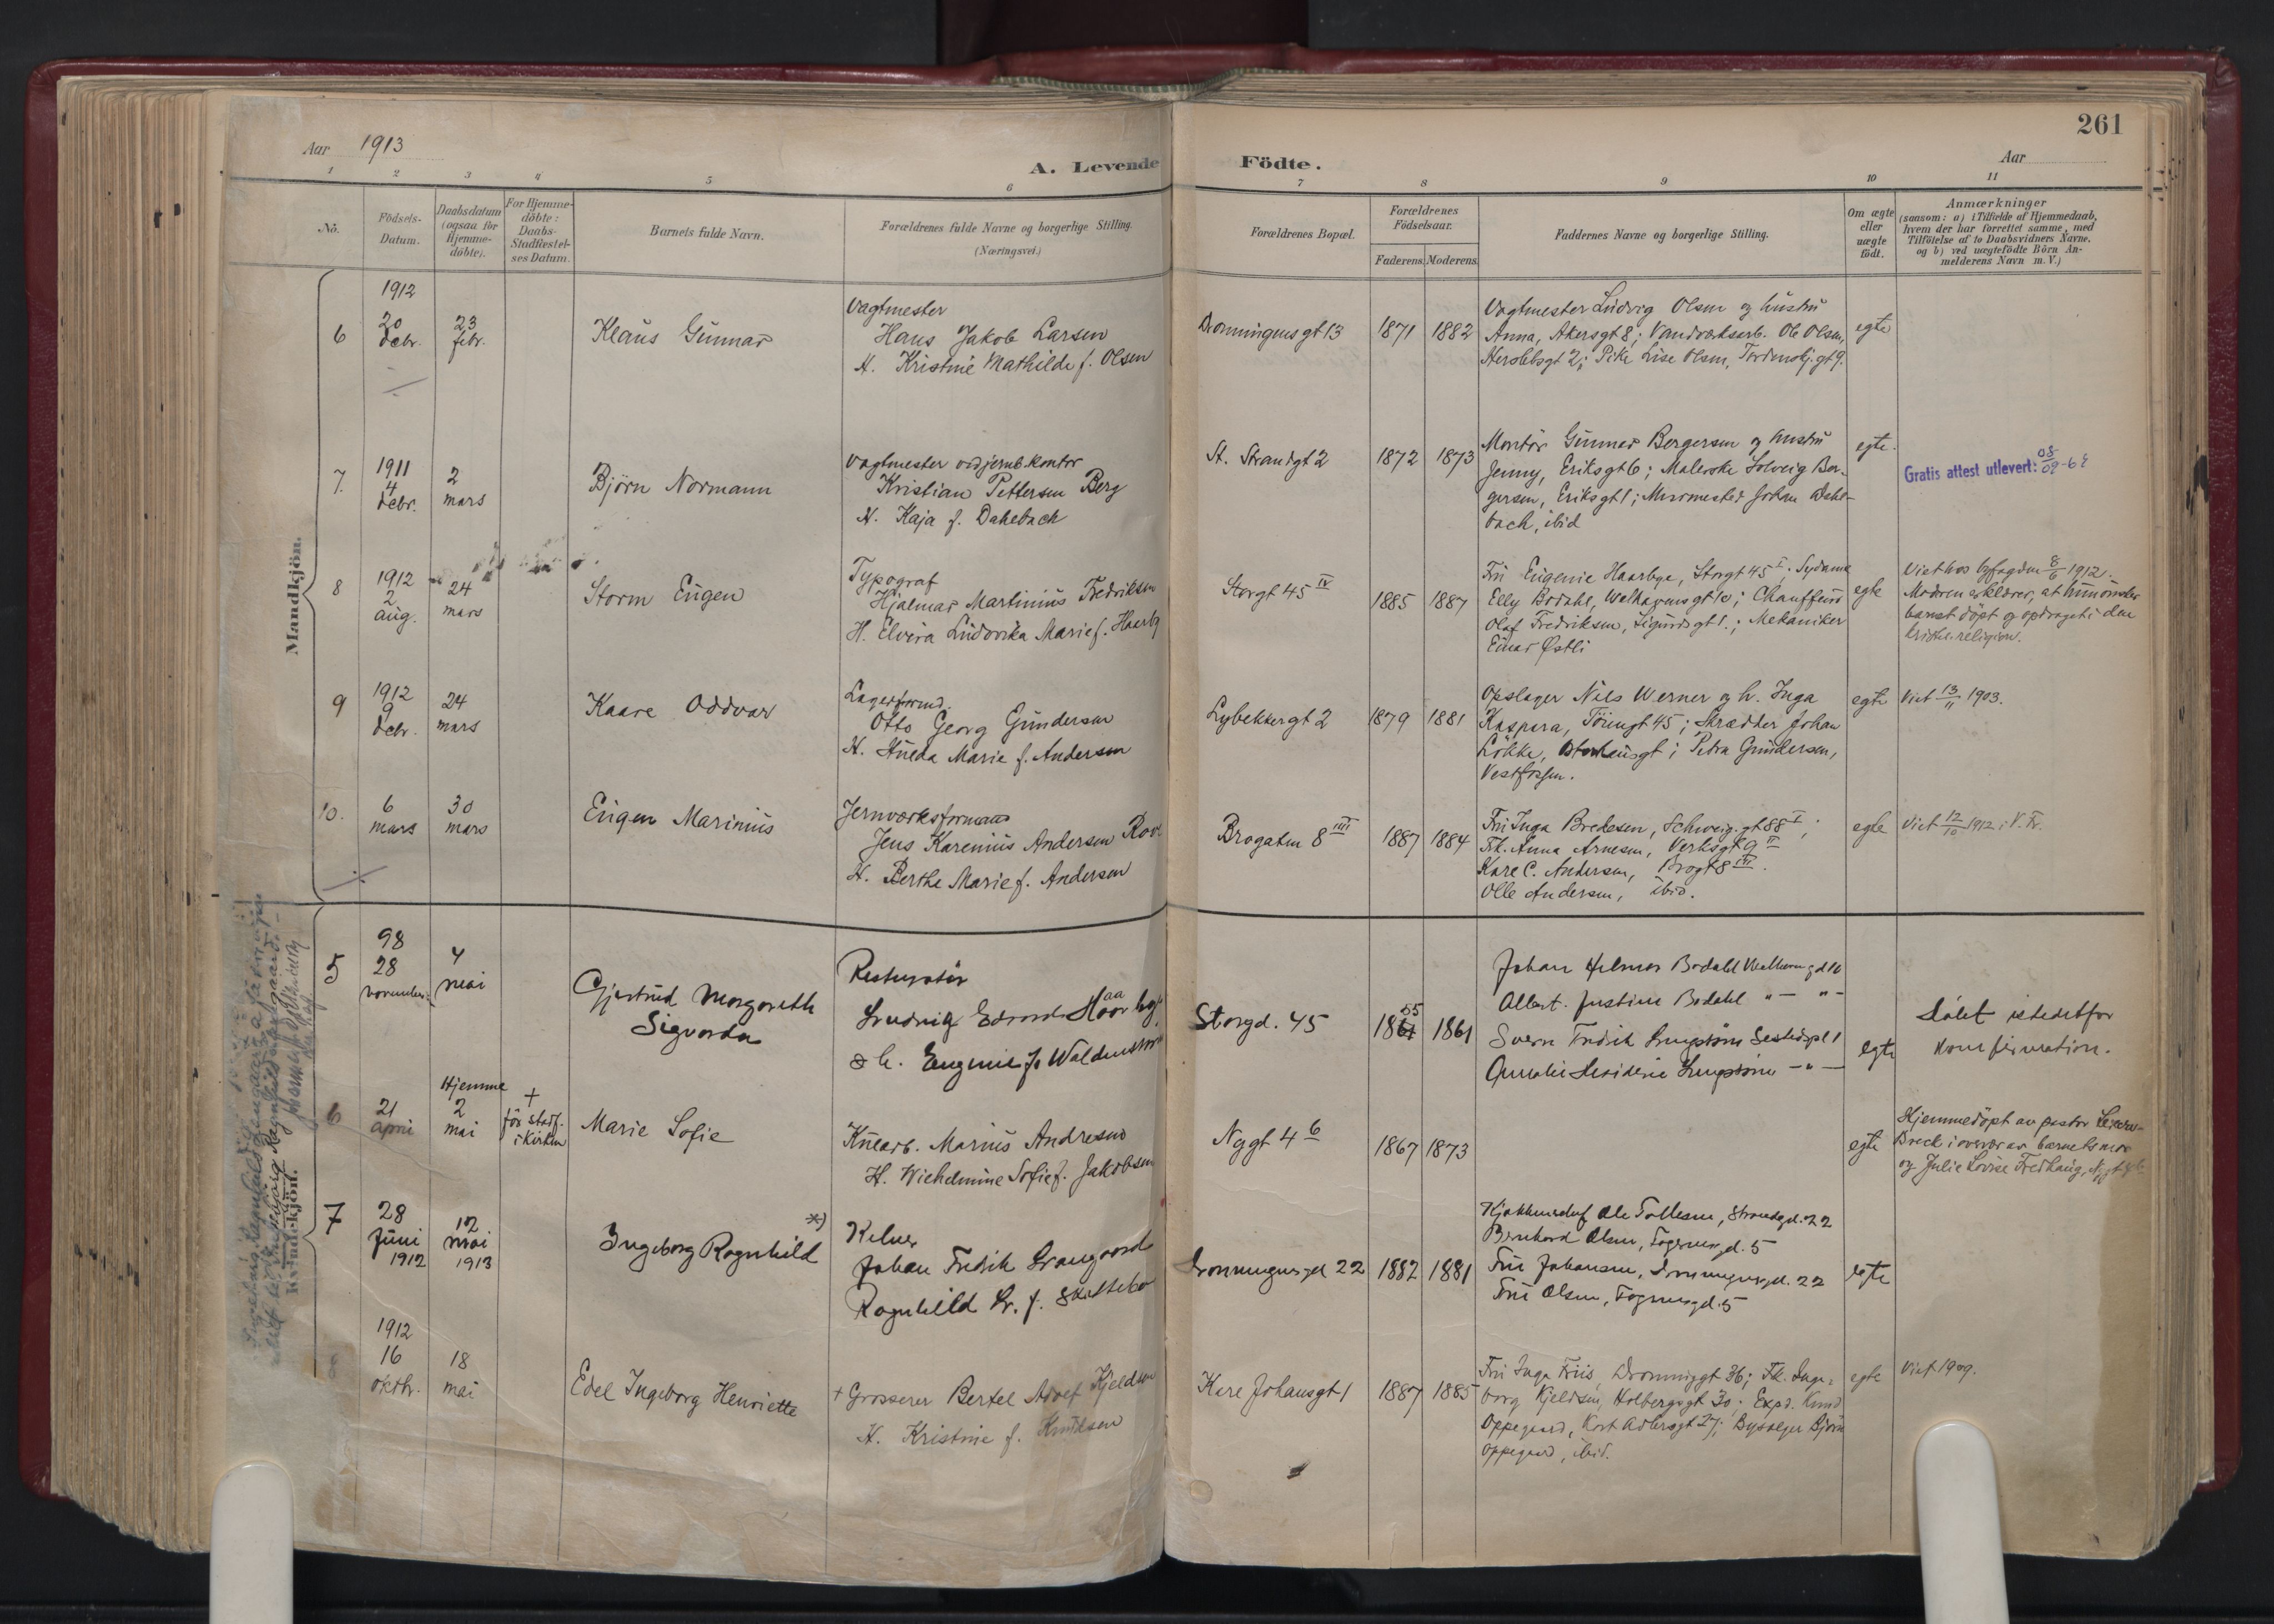 261
Aar 1913
A. Levende Födte.
Aar
1 2 3 4 5 6 7 8 9 10 11
No.
Födsels-
Datum.
Daabsdatum
(ogsaa for
Hjemme-
döbte).
For Hjemme-
döbte:
Daabs-
Stadfestel-
ses Datum.
Barnets fulde Navn.
Forældrenes fulde Navne og borgerlige Stilling.
(Næringsvei.)
Forældrenes Bopæl.
Forældrenes
Födselsaar.
Faderens. Moderens.
Faddernes Navne og borgerlige Stilling.
Om ægte
eller
uægte
födt.
Anmærkninger
(saasom: a) i Tilfælde af Hjemmedaab,
hvem der har forrettet samme, med
Tilföielse af to Daabsvidners Navne,
og b) ved uægtefödte Börn An-
melderens Navn m. V.)
Mandkjön.
6
1912
20
debr.
23
febr.
Klaus Gunnar
Vagtmester
Hans Jakob Larsen
H. Kristine Mathilde f. Olsen
Dronningensgt 13
1871 1882
Vagtmester Ludvig Olsen og hustru
Anna, Akersgt 8; Vandværksarb. Ole Olsen,
Herslebsgt 2; Pike Lise Olsen, Tordenskj.gt 9.
egte
7.
1911
4
debr.
2
mars
Björn Normann
Vagtmester ved jernb.kontor
Kristian Pettersen Berg
H. Kaja f. Dahlbach
St. Strandgt 2
1872 1873
Montör Gunnar Bergersen og hustru
Jenny, Eriksgt 6; Malerske Solveig Ber-
gersen, Eriksgt 1; Murmester Johan Dahl-
bach, ibid
egte.
Gratis attest utlevert:
8
1912
2
aug.
24
mars
Storm Eugen
Typograf
Hjalmar Martinius Fredriksen
H. Elvira Ludovika Marie f. Haarby
Storgt 45 IV
1885 1887
Fru Eugenie Haarbye, Storgt 45 I; Sydame
Elly Bodahl, Welhavensgt 10; Chauffeur
Olaf Fredriksen, Sigurdsgt 1.; Mekaniker
Einar Østli
egte
Viet hos byfogden 8/6 1912.
Modren erklærer, at hun önsker
barnet döpt og opdraget i den
kristne religion.
9
1912
9
debr.
24
mars
Kaare Oddvar
Lagerformd.
Otto Georg Gundersen
H. Hulda Marie f. Andersen
Lybekkergt 2
1879 1881
Opslager Nils Werner og h. Inga
Kaspara, Töiengt 45; Skrædder Johan
Lökke, gt; Petra Gundersen,
Vestfossen.
egte
Viet 13/11 1903.
10.
6
mars
30
mars
Eugen Marinius
Jernværksformand
Jens Karenius Andersen
H. Berthe Marie f. Andersen
Brogaten 8 III
1887 1884
Fru Inga Bredesen, Schweig.gt 88 I;
Frk. Anna Arnesen, Verksgt 9 II
Kare C. Andersen, Brogt 8 III.
Olle Andersen, ibid.
egte
Viet 12/10 1912 i V. Fr.
Kvindekjön.
5
98
28
november
4
mai
Gjertrud Margareth
Sigvarda
Restauratör
Ludvig Edvard Haarby
& h. Eugenie f. Waldenström
Storgd. 45
55
1861 1861
Johan Hilmar Bodahl Welhavengd 10
Albert. Justine Bodahl " — " —
Svern Fredrik
— " —
egte
Döbt istedetfor
konfirmation.
6
21
april
Hjemme
2
mai
+
för stadf.
i kirken
Marie Sofie
Kularb. Marius Andresen
H. Wilhelmine Sofie f. Jakobsen
Nygt 4 b
1867 1873
egte
Hjemmedöpt av pastor
i overvær av barnets mor
og Julie Lovise Fredhaug,
7
28
Juni
1912
12
mai
1913
Ingeborg Ragnhild *)
Kelner
Johan Fredrik
Ragnhild
Dronningensgd 22
1882 1881
Ole Tollesen, Strandgd. 22
Bernhard Olsen, Fogernesgd. 5
Fru Johansen, Dronningensgd. 22
Fru Olsen, Fogernesgd. 5
egte
8
1912
16
oktbr.
18
mai
Edel Ingeborg Henriette
+ Grosserer Bertel Adolf Kjeldsen
H. Kristine f. Knudsen
Karl Johansgt 1
1887 1885
Fru Inga Friis, Dronninggt 36; Frk. Inge-
borg Kjeldsen, Holbergsgt 30; Exped. Knud
Oppegaard, Kort Adlersgt 27; Bysælger Björn
Oppegaard, ibid.
egte
Viet 1909.